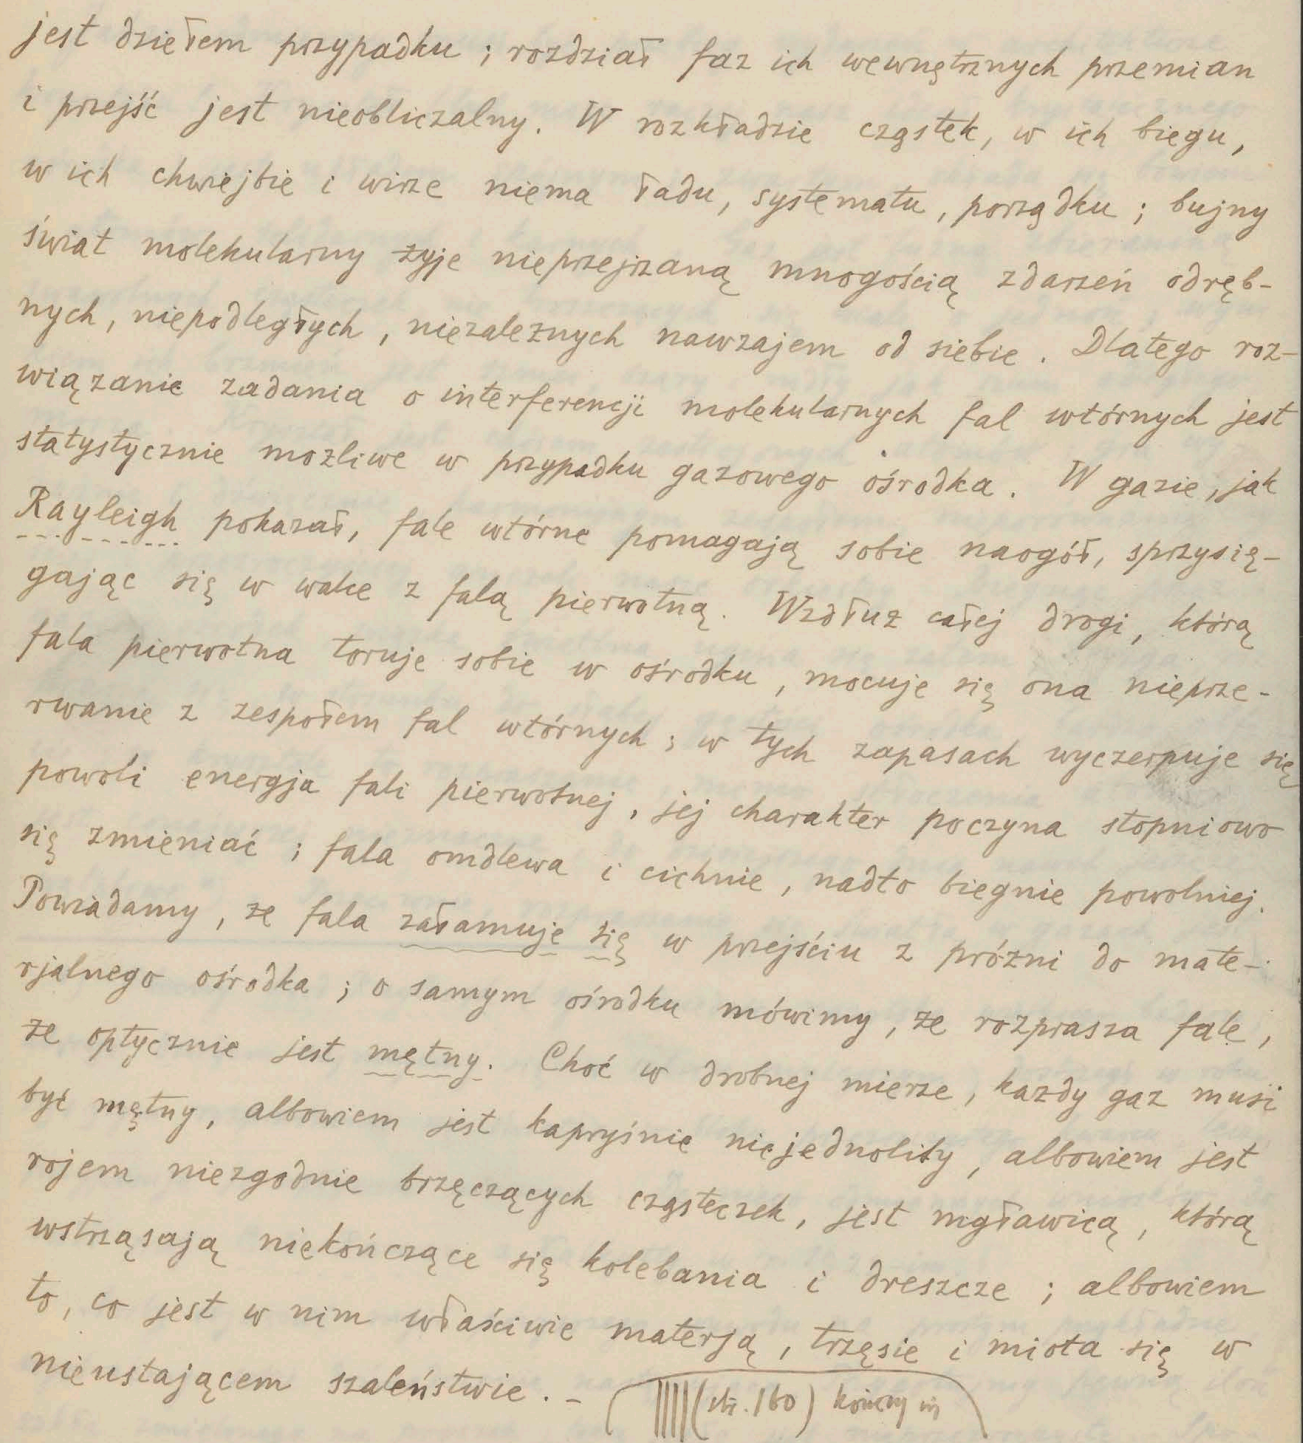 jest dziełem przypadku ; rozdział faz ich wewnętrznych przemian
i przejść jest nieobliczalny. W rozkładzie cząstek, w ich biegu,
w ich chwiejbie i wirze niema ładu, systematu, porządku ; bujny
świat molekularny żyje nieprzejrzaną mnogością zdarzeń odręb-
nych, niepodległych, niezależnych nawzajem od siebie. Dlatego roz-
wiązanie zadania o interferencji molekularnych fal wtórnych jest
statystycznie możliwe w przypadku gazowego ośrodka. W gazie, jak
Rayleigh pokazał, fale wtórne pomagają sobie naogół, sprzysię-
gając się w walce z falą pierwotną. Wzdłuż całej drogi, którą
fala pierwotna toruje sobie w ośrodku, mocuje się ona nieprze-
rwanie z zespołem fal wtórnych ; w tych zapasach wyczerpuje się
powoli energja fali pierwotnej, jej charakter poczyna stopniowo
się zmieniać ; fala omdlewa i cichnie, nadto biegnie powolniej.
Powiadamy, że fala załamuje się w przejściu z próżni do mate-
rjalnego ośrodka ; o samym ośrodku mówimy, że rozprasza fale,
że optycznie jest mętny. Choć w drobnej mierze, każdy gaz musi
być mętny, albowiem jest kapryśnie niejednolity, albowiem jest
rojem niezgodnie brzęczących cząsteczek, jest mgławicą, którą
wstrząsają niekończące się kolebania i dreszcze ; albowiem
to, co jest w nim właściwie materją, trzęsie i miota się w
nieustającem szaleństwie. – (str. 160) kończy się